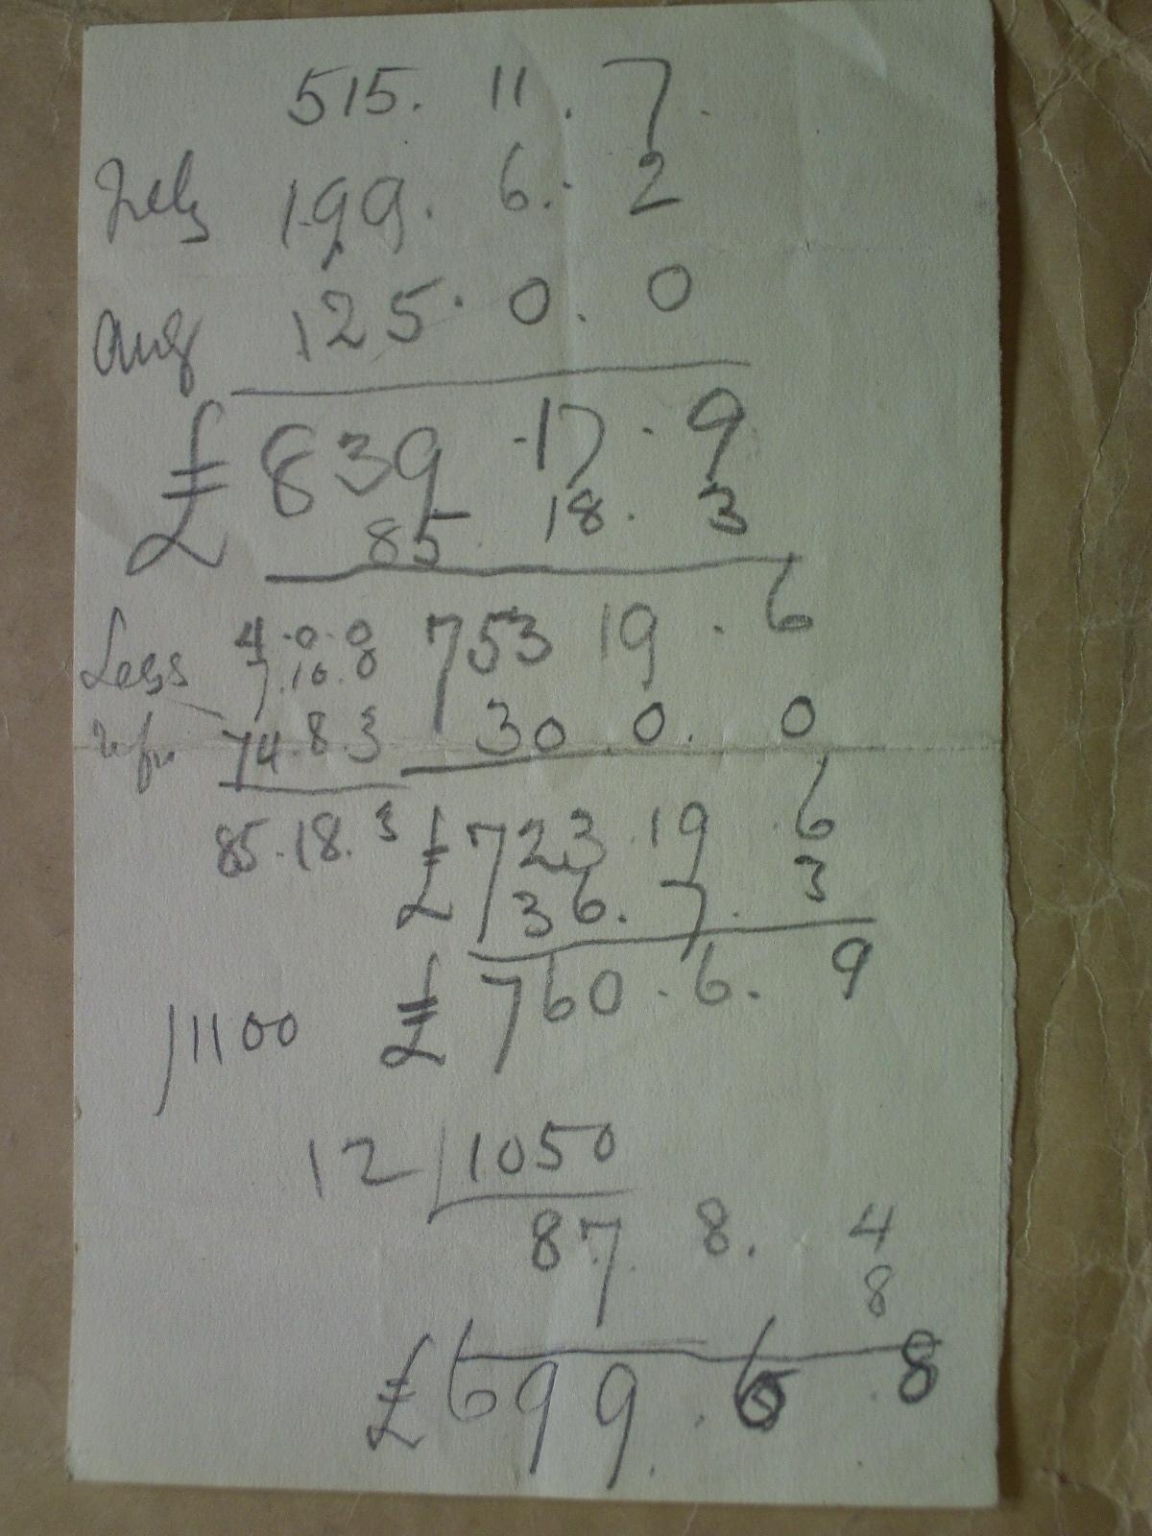 515. 11. 7.
July 199. 6. 2
Aug 125. 0. 0
£ 839 . 17 . 9
85. 18. 3
Less 4.0.0 753 19 . 6
7.10.0
74.8.3 30.0. 0
85.18.3 £723.19.6
36.7.3
/1100 £760.6.9
12 1050
87 8. 4
8
£699.6.8